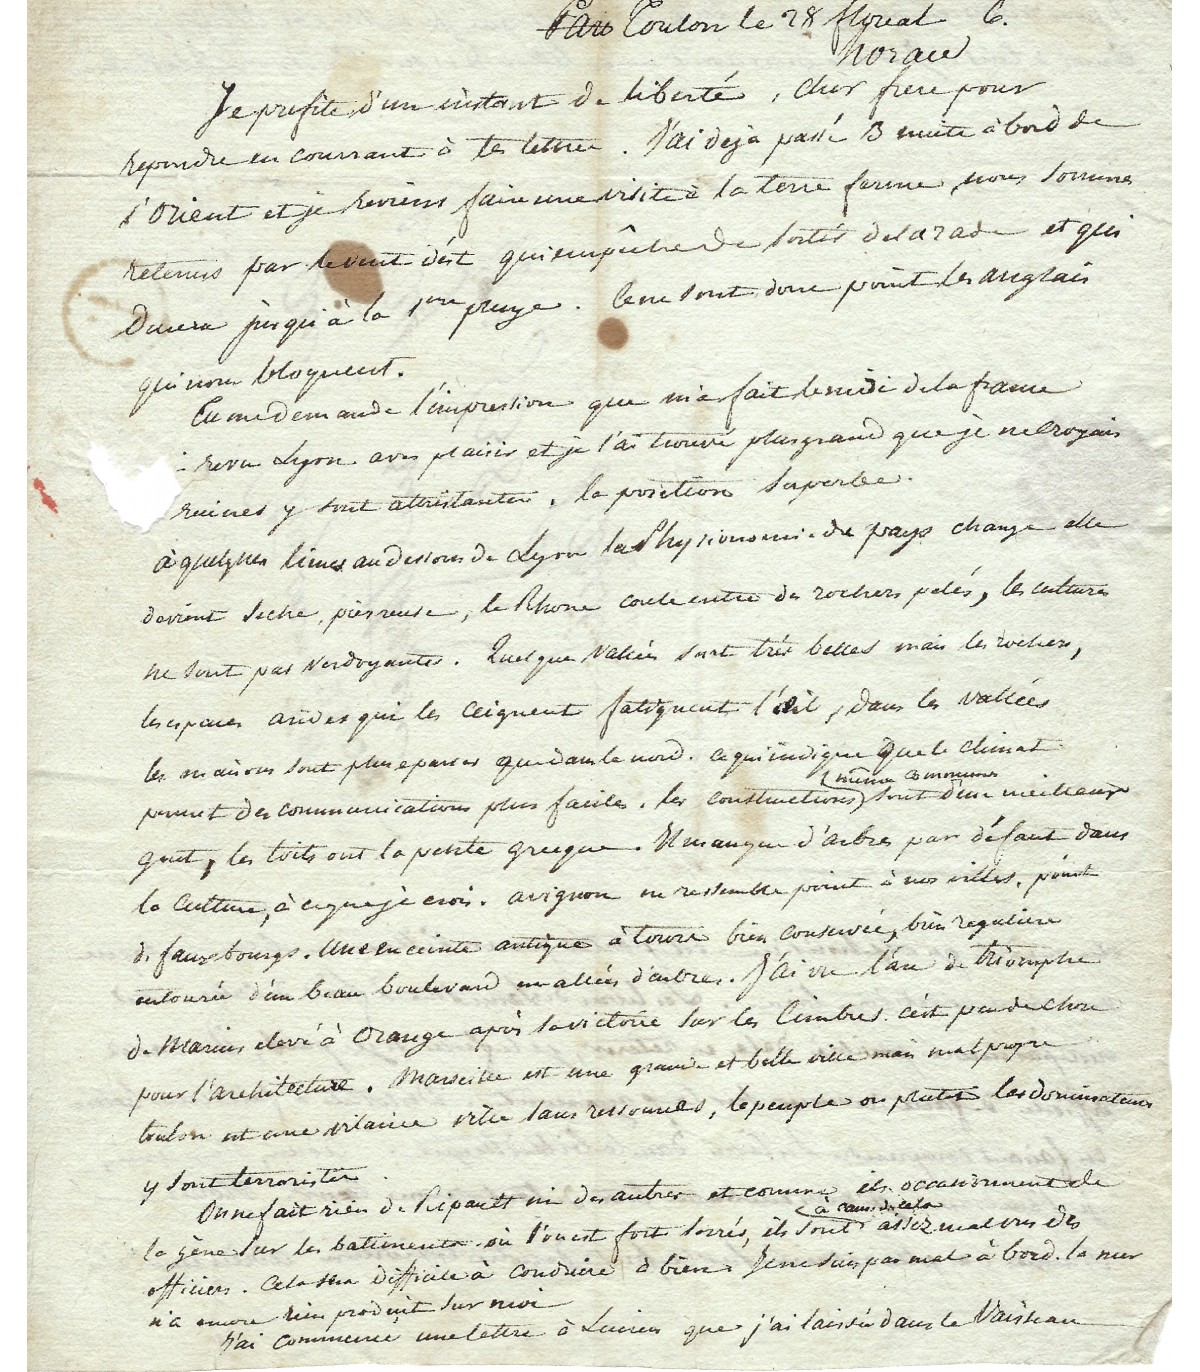 Toulon le 28 floreal 6.
Je profite d'un instant de liberté, cher frere pour
repondre en courrant à tes lettres. J'ai dejà passé 3 nuits à bord de
l'Orient et je reviens faire une visite à la terre ferme, nous sommes
retenus par le vent d'ést qui empêche de sortir de la rade et qui
Durera jusqu'à la 1ere . Ce ne sont donc point les anglais
qui nous bloquent.
Tu me demande l'impression que m'a fait le midi de la france
revu Lyon avec plaisir et je l'ai trouvé plus grand que je ne croyais
ruines y sont attristantes. la position superbe.
à quelques lieues au dessous de Lyon la Physionomie du pays change elle
devient seche, pierreuse, le Rhone coule entre des rochers pelés, les cultures
ne sont pas verdoyantes. Quelques vallées sont très belles mais les rochers,
les espaces arides qui les ceignent fatiguent l'œil, dans les vallées
les maisons sont plus eparses que dans le nord. ce qui indique que le climat
permet des communications plus faciles. les constructions (même communes) sont d'un meilleur
gout, les toits ont la pente grecque. Il manque d'arbres par défaut dans
la Culture, à ce que je crois. avignon ne ressemble point à nos villes. point
de fauxbourgs. Une enceinte antique à tours bien conservée, bien reguliere
entourée d'un beau boulevard en allées d'arbres. J'ai vu l'arc de triomphe
de Marius elevé à Orange après sa victoire sur les Cimbres. c'ést peu de chose
pour l'architecture. Marseille est une grande et belle ville mais mal propre
toulon est une vilaine ville sans ressources, le peuple ou plutot les dominateurs
y sont terroristes.
On ne fait rien de Ripault ni des autres et comme ils occasionnent de
la gène sur les batiments où l'on est fort serrés, ils sont (à cause de cela) assez mal vus des
officiers. Cela sera difficile à conduire à bien. Je ne suis pas mal à bord. la mer
n'a encore rien produit sur moi
J'ai commencé une lettre à Lucien que j'ai laissée dans le Vaisseau